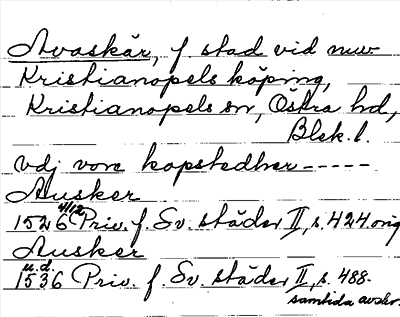 Avaskär, f stad vid nuv
Kristianopels köping,
Kristianopels sn, Östra hd,
Blek. l.
vdj vore kopstedher-----
Ausker
1526 4/12 Priv. f. Sv. städer II, s. 424. orig
Ausker
1536 u.d. Priv. f. Sv. städer II, s. 488.
samtida avskr.